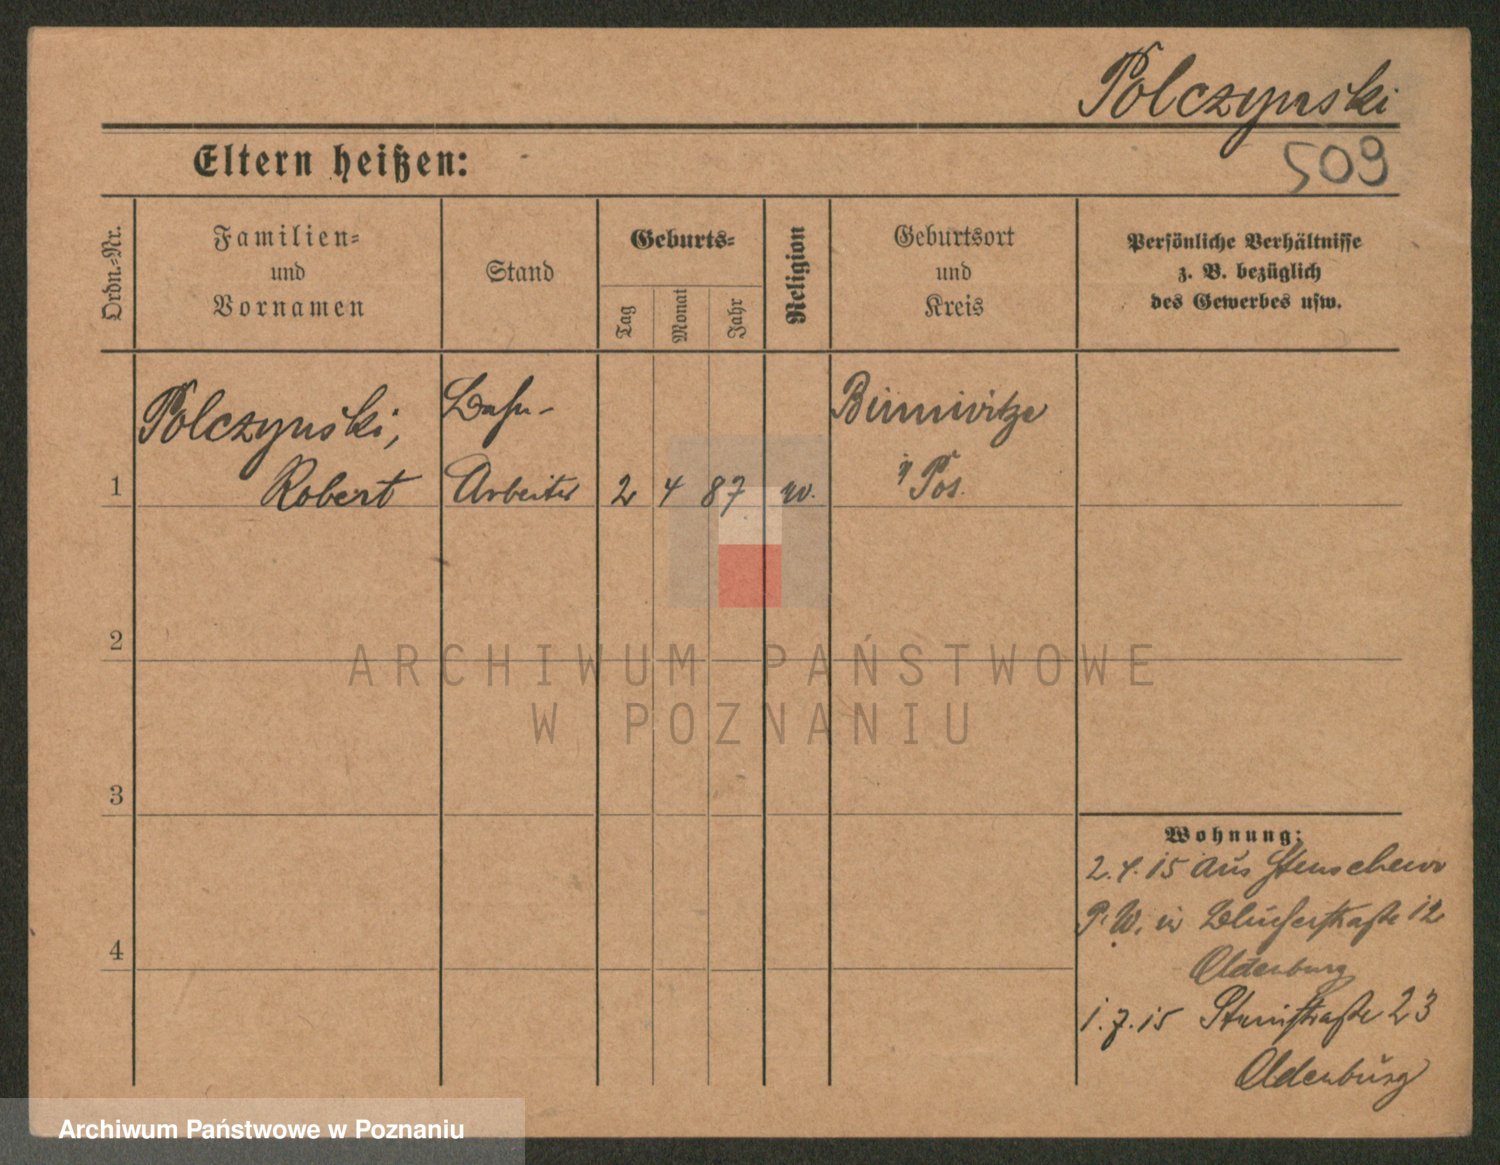 Polczynski
Eltern heißen:
509
Ordn.-Nr.
Familien-
und
Vornamen
Stand
Geburts-
Tag
Monat
Jahr
Religion
Geburtsort
und
Kreis
Persönliche Verhältnisse
z. B. bezüglich
des Gewerbes usw.
Polczynski,
Robert
Bahn-
Arbeiter
1
2 4 87
Pos.
2
3
4
Wohnung:
2.4.15 aus Stenschewo
P. W. in Blücherstraße 12
Oldenburg
1.7.15 23
Oldenburg
ARCHIWUM PAŃSTWOWE
W POZNANIU
Archiwum Państwowe w Poznaniu